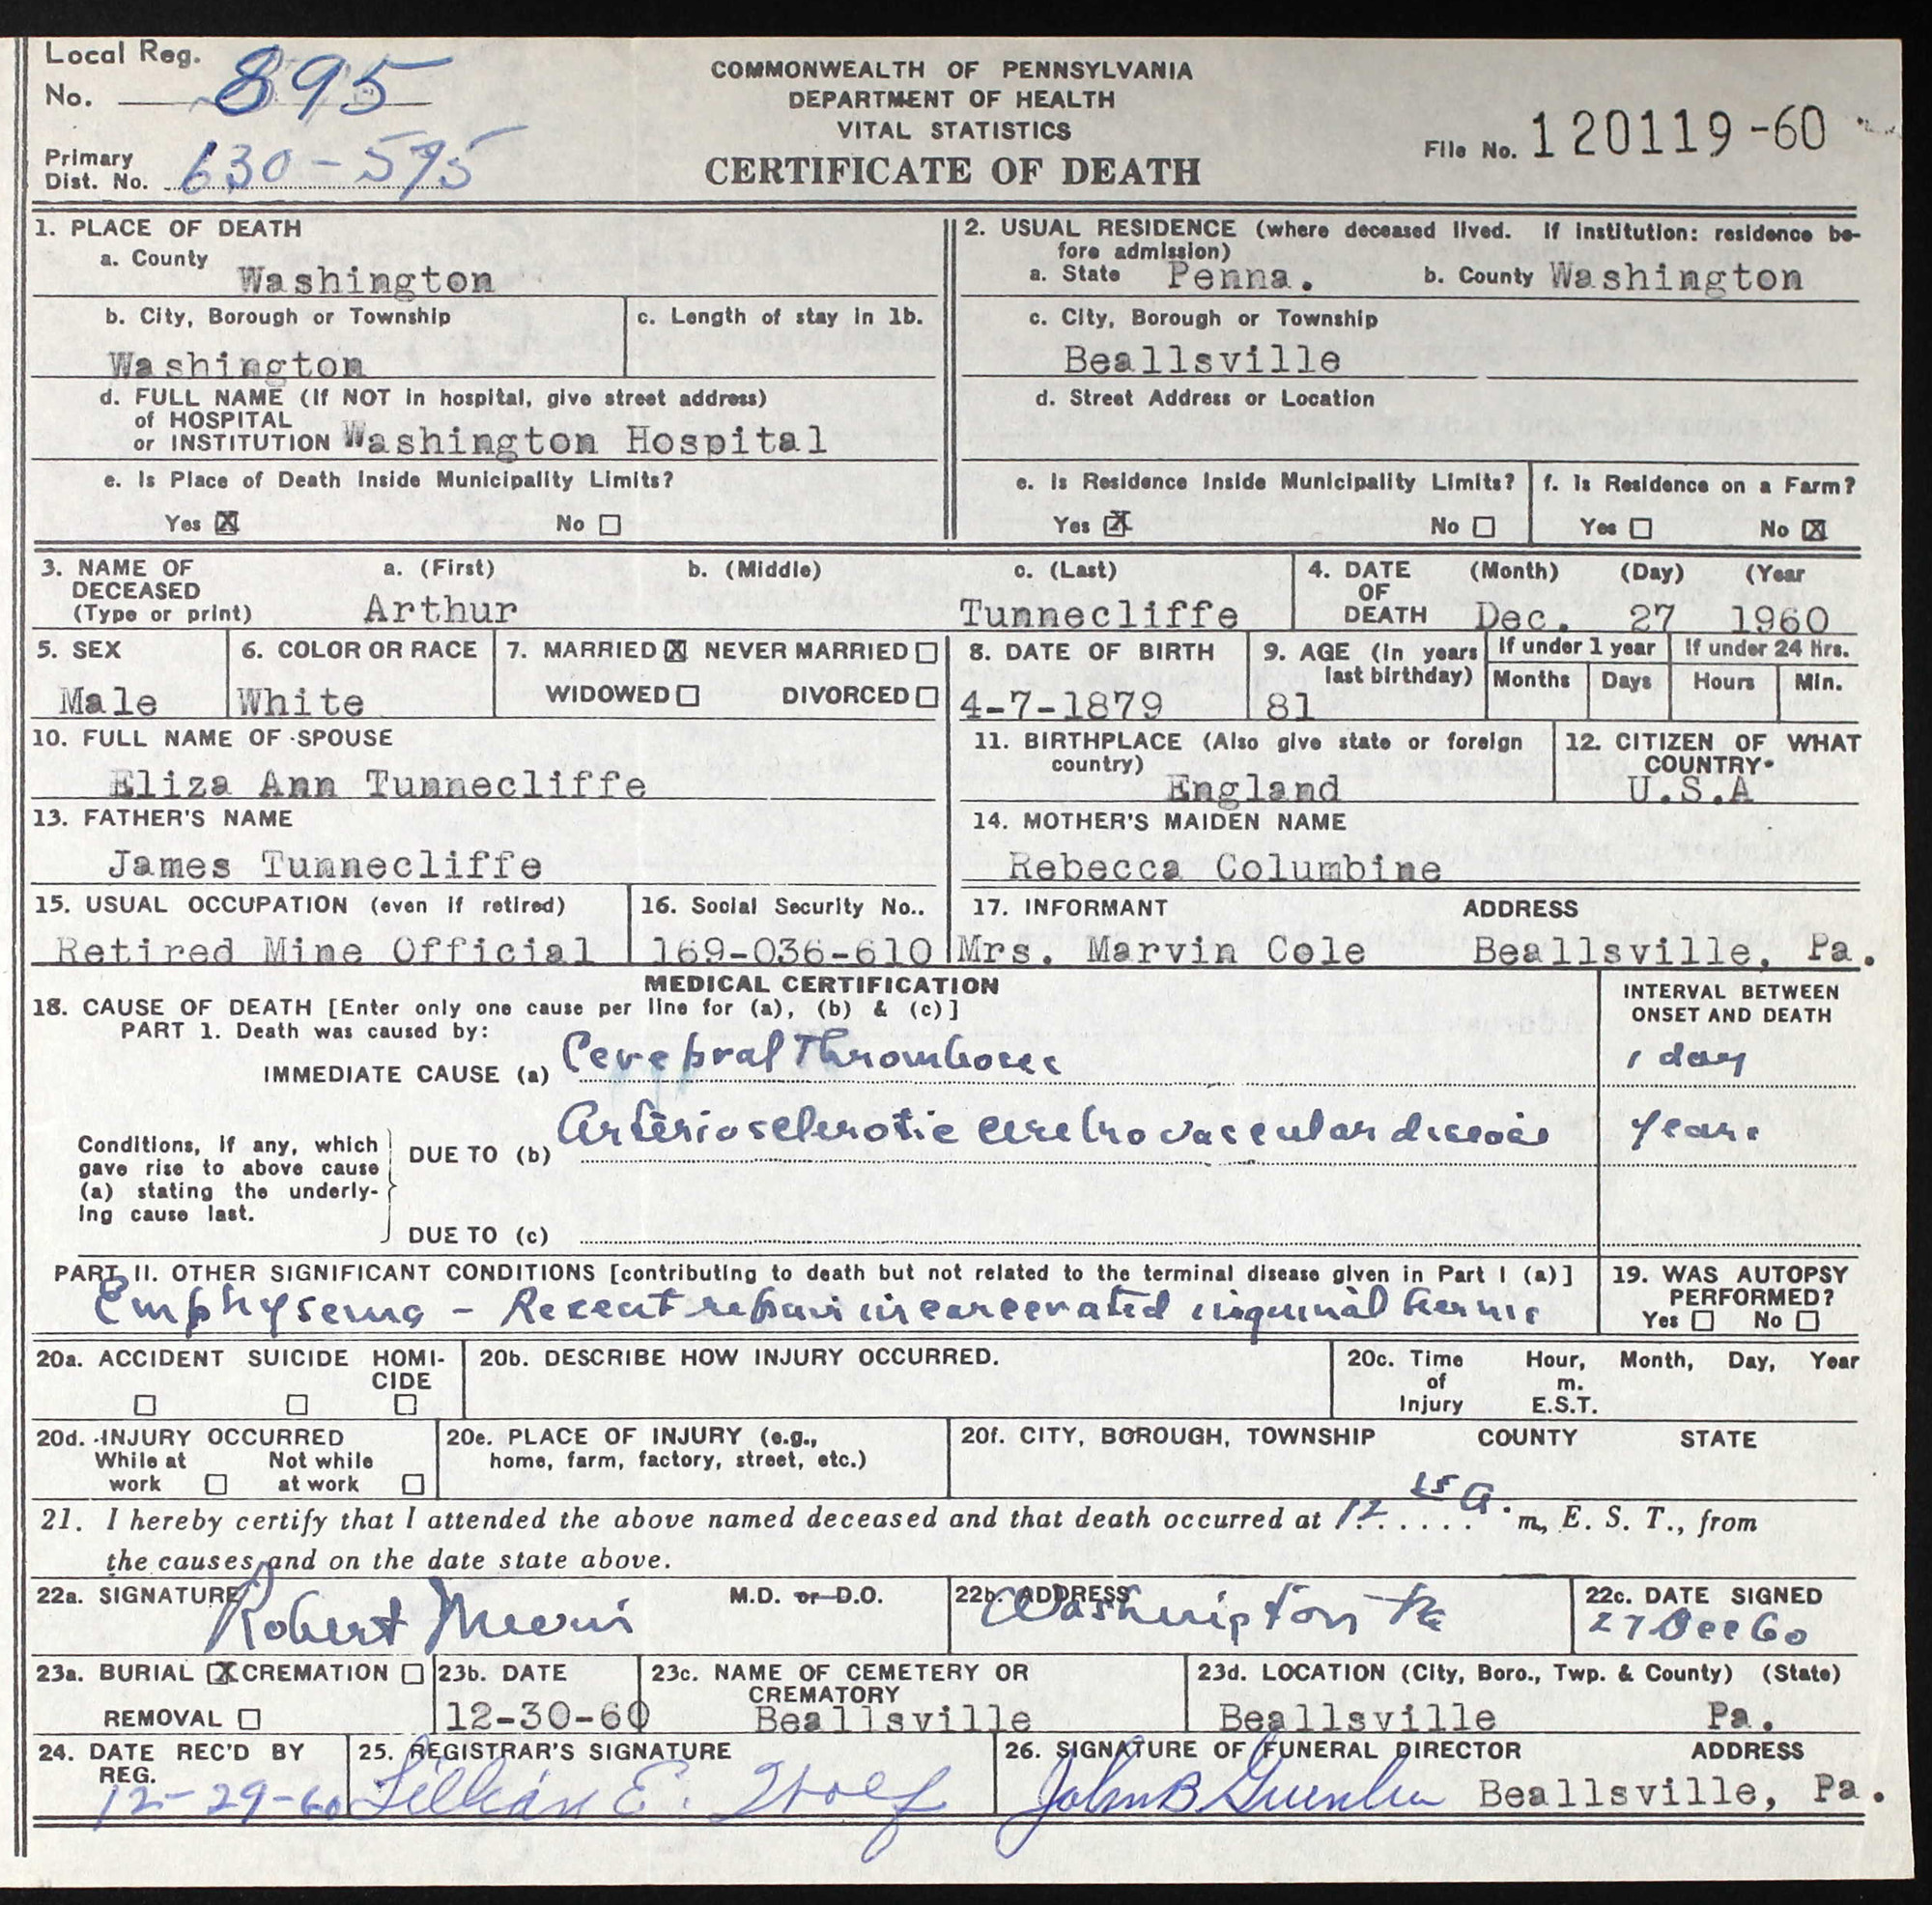 Local Reg.
No. 895
Primary
Dist. No. 630-595
COMMONWEALTH OF PENNSYLVANIA
DEPARTMENT OF HEALTH
VITAL STATISTICS
CERTIFICATE OF DEATH
File No. 120119-60
1. PLACE OF DEATH
a. County
Washington
b. City, Borough or Township
c. Length of stay in 1b.
Washington
d. FULL NAME (If NOT in hospital, give street address)
of HOSPITAL
or INSTITUTION Washington Hospital
e. Is Place of Death Inside Municipality Limits?
Yes ☒ No ☐
2. USUAL RESIDENCE (where deceased lived. If institution: residence be-
fore admission)
a. State Penna. b. County Washington
c. City, Borough or Township
Beallsville
d. Street Address or Location
e. Is Residence Inside Municipality Limits?
Yes ☒ No ☐
f. Is Residence on a Farm?
Yes ☐ No ☒
3. NAME OF a. (First) b. (Middle) c. (Last)
DECEASED
(Type or print) Arthur Tunnecliffe
4. DATE (Month) (Day) (Year
OF
DEATH Dec. 27 1960
5. SEX
Male
6. COLOR OR RACE
White
7. MARRIED ☒ NEVER MARRIED ☐
WIDOWED ☐ DIVORCED ☐
8. DATE OF BIRTH
4-7-1879
9. AGE (In years
last birthday)
81
If under 1 year
Months Days
If under 24 Hrs.
Hours Min.
10. FULL NAME OF SPOUSE
Eliza Ann Tunnecliffe
11. BIRTHPLACE (Also give state or foreign
country)
England
12. CITIZEN OF WHAT
COUNTRY
U.S.A
13. FATHER'S NAME
James Tunnecliffe
14. MOTHER'S MAIDEN NAME
Rebecca Columbine
15. USUAL OCCUPATION (even if retired)
Retired Mine Official
16. Social Security No..
169-036-610
17. INFORMANT ADDRESS
Mrs. Marvin Cole Beallsville, Pa.
MEDICAL CERTIFICATION
18. CAUSE OF DEATH [Enter only one cause per line for (a), (b) & (c)]
PART 1. Death was caused by:
IMMEDIATE CAUSE (a) Cerebral Thrombosis
INTERVAL BETWEEN
ONSET AND DEATH
1 day
Conditions, if any, which
gave rise to above cause
(a) stating the underly-
ing cause last.
DUE TO (b) Arteriosclerotic cerebrovascular disease
years
DUE TO (c)
PART II. OTHER SIGNIFICANT CONDITIONS [contributing to death but not related to the terminal disease given in Part I (a)]
Emphysema - Recent repair incarcerated inguinal hernia
19. WAS AUTOPSY
PERFORMED?
Yes ☐ No ☐
20a. ACCIDENT SUICIDE HOMI-
CIDE
☐ ☐ ☐
20b. DESCRIBE HOW INJURY OCCURRED.
20c. Time Hour, Month, Day, Year
of m.
Injury E.S.T.
20d. INJURY OCCURRED
While at Not while
work ☐ at work ☐
20e. PLACE OF INJURY (e.g.,
home, farm, factory, street, etc.)
20f. CITY, BOROUGH, TOWNSHIP COUNTY STATE
21. I hereby certify that I attended the above named deceased and that death occurred at 12 15 a. m, E. S. T., from
the causes and on the date state above.
22a. SIGNATURE M.D. or D.O.
Robert
22b. ADDRESS
Washington Pa
22c. DATE SIGNED
27 Dec 60
23a. BURIAL ☒ CREMATION ☐
REMOVAL ☐
23b. DATE
12-30-60
23c. NAME OF CEMETERY OR
CREMATORY
Beallsville
23d. LOCATION (City, Boro., Twp. & County) (State)
Beallsville Pa.
24. DATE REC'D BY
REG.
12-29-60
25. REGISTRAR'S SIGNATURE
Lillian E.
26. SIGNATURE OF FUNERAL DIRECTOR ADDRESS
John B Beallsville, Pa.